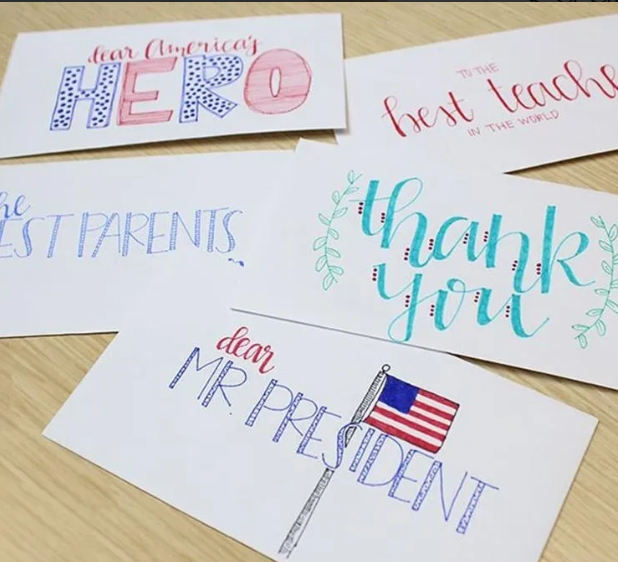 dear America's
HERO
TO THE
best teache
IN THE WORLD
he
EST PARENTS
thank
you
dear
MR. PRESIDENT